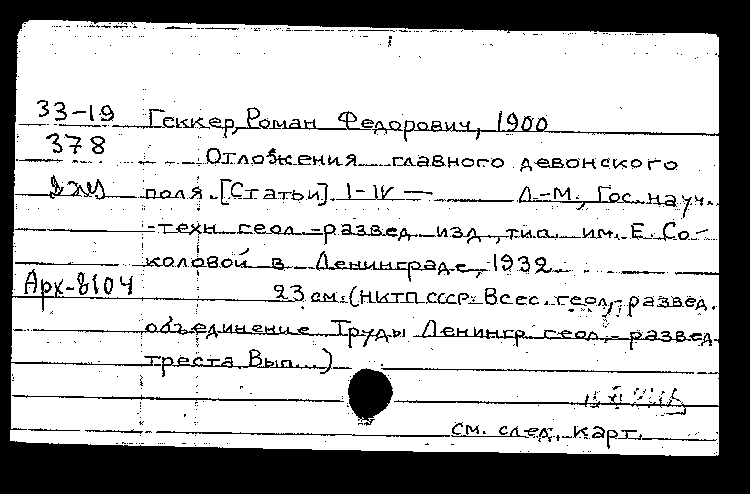 33-19 Геккер, Роман Федорович, 1900
378 Отложения главного девонского
2 экз поля. [Статьи] I-IV — Л.-М., Гос. науч.
-техн. геол.-развед. изд., тип. им. Е. Со-
коловой в Ленинграде, 1932
Арх-8104 23 см. (НКТП СССР. Всес. геол.-развед.
объединение Труды Ленингр. геол.-развед.
треста. Вып...)
см. след. карт.